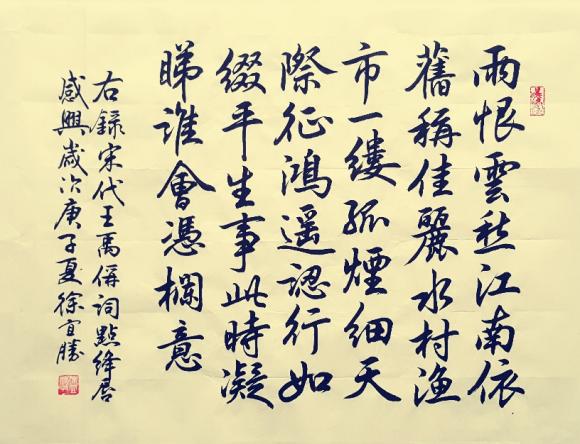 雨恨雲愁江南依
舊稱佳麗水村漁
市一縷孤煙細天
際征鴻遥認行如
綴平生事此時凝
睇誰會憑欄意
右録宋代王禹偁詞點绛唇
感興歲次庚子夏徐宜勝